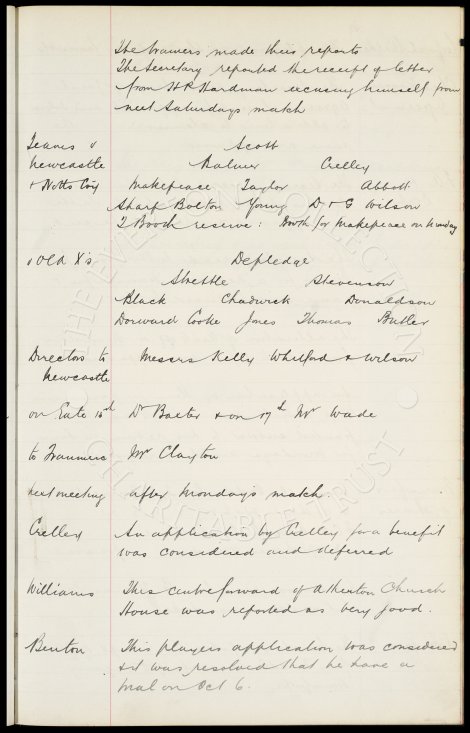 The trainers made their reports
The Secretary reported the receipt of letter
from H P Hardman excusing himself from
next Saturdays match
Teams v Scott
Newcastle Balmer Crelley
+ Notts Coy Makepeace Taylor Abbott
Sharp Bolton Young D + G Wilson
T Booth reserve: Booth for Makepeace on Monday
v Old X's Depledge
Strettle Stevenson
Black Chadwick Donaldson
Dorward Cooke Jones Thomas Butler
Directors to Messrs Kelly Whitford + Wilson
Newcastle
on Gate 15th Dr Baxter + on 17th Mr Wade
to Tranmere Mr Clayton
next meeting after Mondays match.
Crelley An application by Crelley for a benefit
was considered and deferred
Williams This centre forward of Atherton Church
House was reported as very good.
Benton This players application was considered
+ it was resolved that he have a
trial on Oct 6.
THE EVERTON COLLECTION
CHARITABLE TRUST